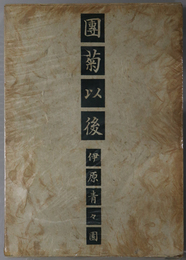 團菊以後
伊原青々園